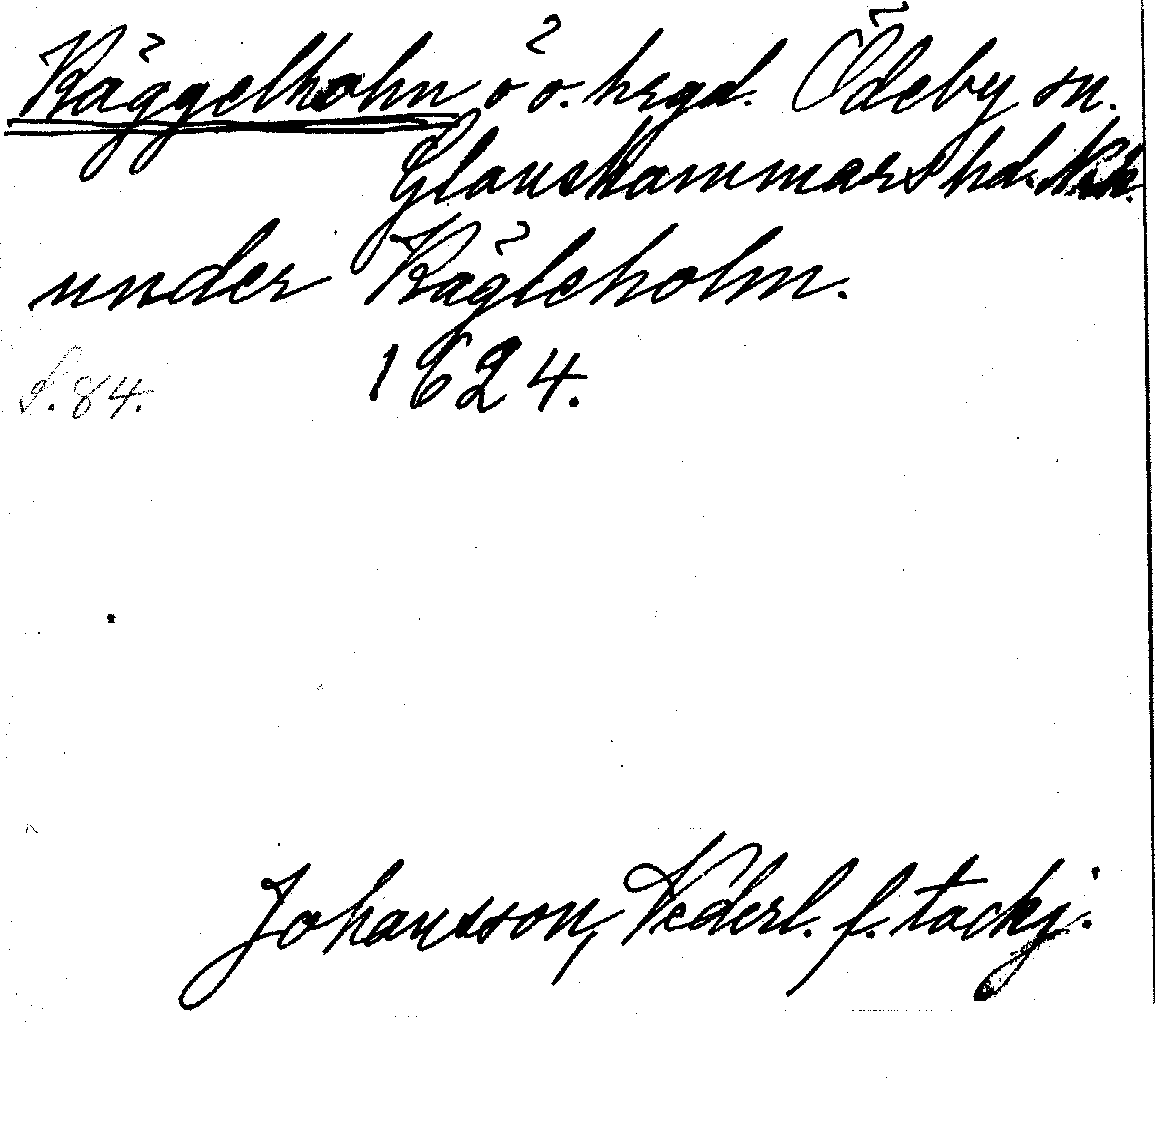 Käggelholm o ö. hrgd. Ödeby sn.
Glanshammars hd. Nrk.
under Kägleholm.
S. 84. 1624.
Johansson, Vederl. f. tackj.